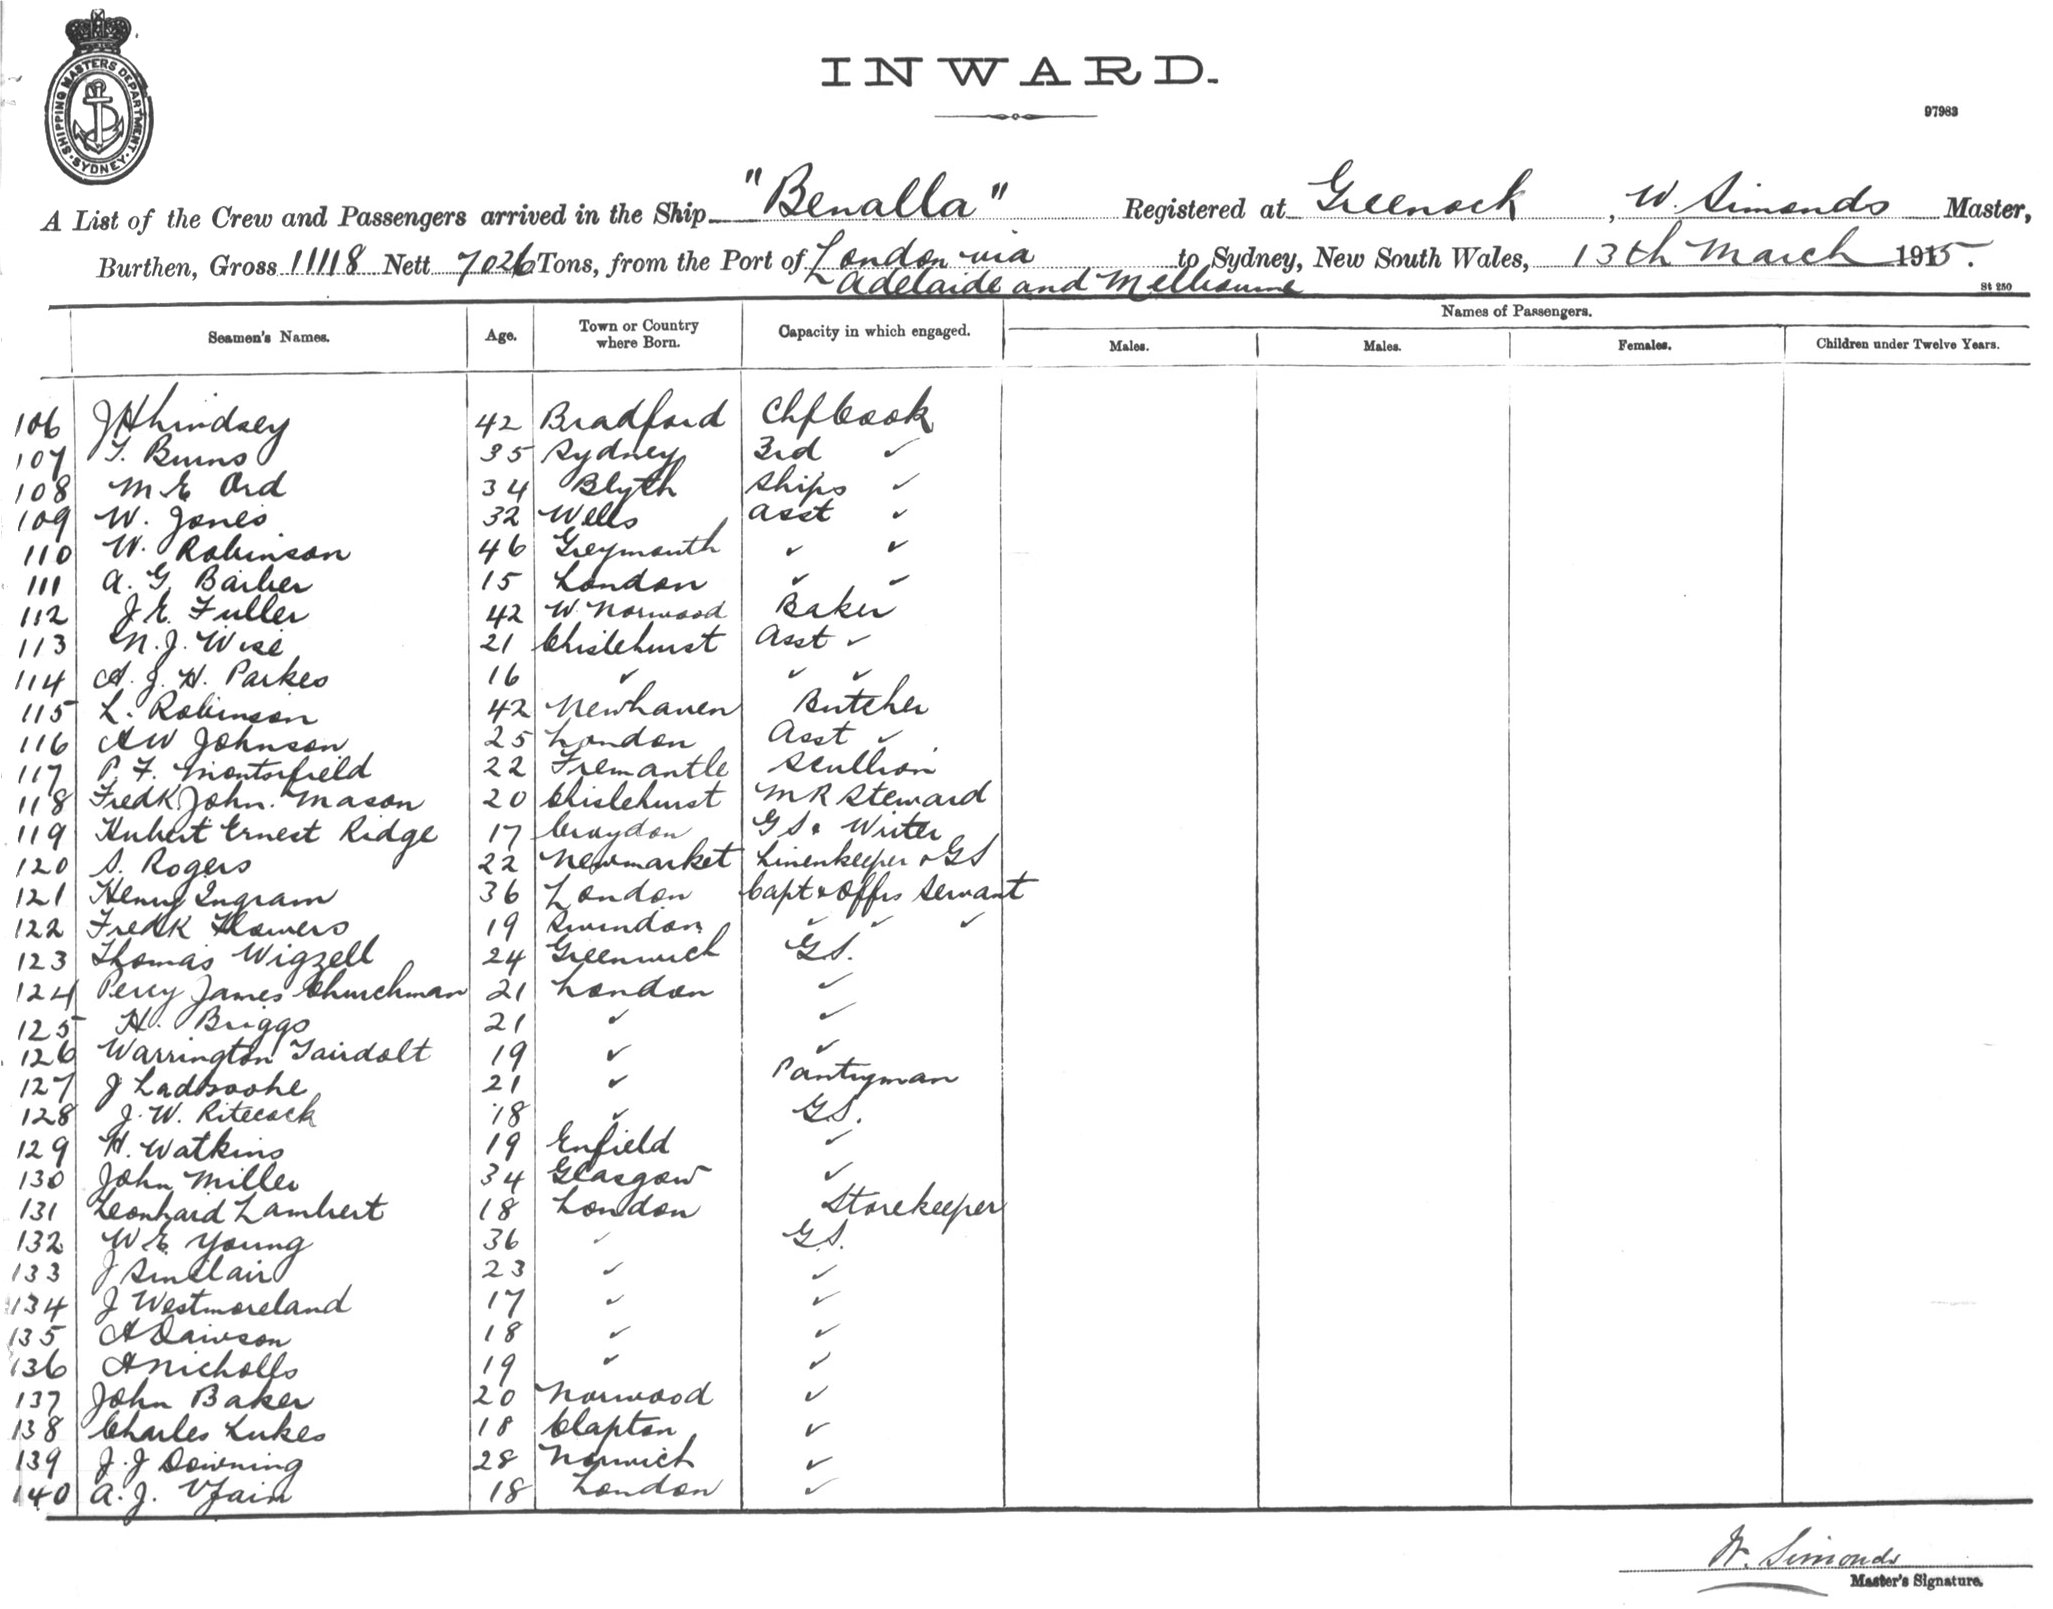 SHIPPING MASTERS DEPARTMENT · SYDNEY ·
INWARD.
97983
A List of the Crew and Passengers arrived in the Ship "Benalla" Registered at Greenock, W. Simonds Master,
Burthen, Gross 11118 Nett 7026 Tons, from the Port of London via to Sydney, New South Wales, 13th March 1915.
Adelaide and Melbourne
St 250
Names of Passengers.
Seamen's Names. Age. Town or Country where Born. Capacity in which engaged. Males. Males. Females. Children under Twelve Years.
106 42 Bradford Chf Cook
107 T. Burns 35 Sydney 3rd ✓
108 M E Ord 34 Blyth Ships ✓
109 W. Jones 32 Wells Asst ✓
110 W. Robinson 46 Greymouth ✓ ✓
111 A. G. Barber 15 London ✓ ✓
112 J. E. Fuller 42 W. Norwood Baker
113 N. J. Wise 21 Chislehurst Asst ✓
114 A. J. H. Parkes 16 ✓ ✓ ✓
115 L. Robinson 42 Newhaven Butcher
116 A W Johnson 25 London Asst ✓
117 P. F. 22 Fremantle Scullion
118 Fredk John. Mason 20 Chislehurst M R Steward
119 Hubert Ernest Ridge 17 Croydon G S & Writer
120 S. Rogers 22 Newmarket Linenkeeper & GS
121 Henry Ingram 36 London Capt & Offrs Servant
122 Fredk Flowers 19 Swindon ✓ ✓ ✓
123 Thomas Wigzell 24 Greenwich G S.
124 Percy James Churchman 21 London ✓
125 H. Briggs 21 ✓ ✓
126 Warrington 19 ✓ ✓
127 J Ladbrooke 21 ✓ Pantryman
128 J. W. 18 ✓ G S.
129 H. Watkins 19 Enfield ✓
130 John Miller 34 Glasgow ✓
131 Leonhard Lambert 18 London Storekeeper
132 W. E. Young 36 ✓ G S.
133 J Sinclair 23 ✓ ✓
134 J Westmoreland 17 ✓ ✓
135 A Dawson 18 ✓ ✓
136 A Nicholls 19 ✓ ✓
137 John Baker 20 Norwood ✓
138 Charles Lukes 18 Clapton ✓
139 J. J Downing 28 Norwich ✓
140 A. J. 18 London ✓
W. Simonds
Master's Signature.